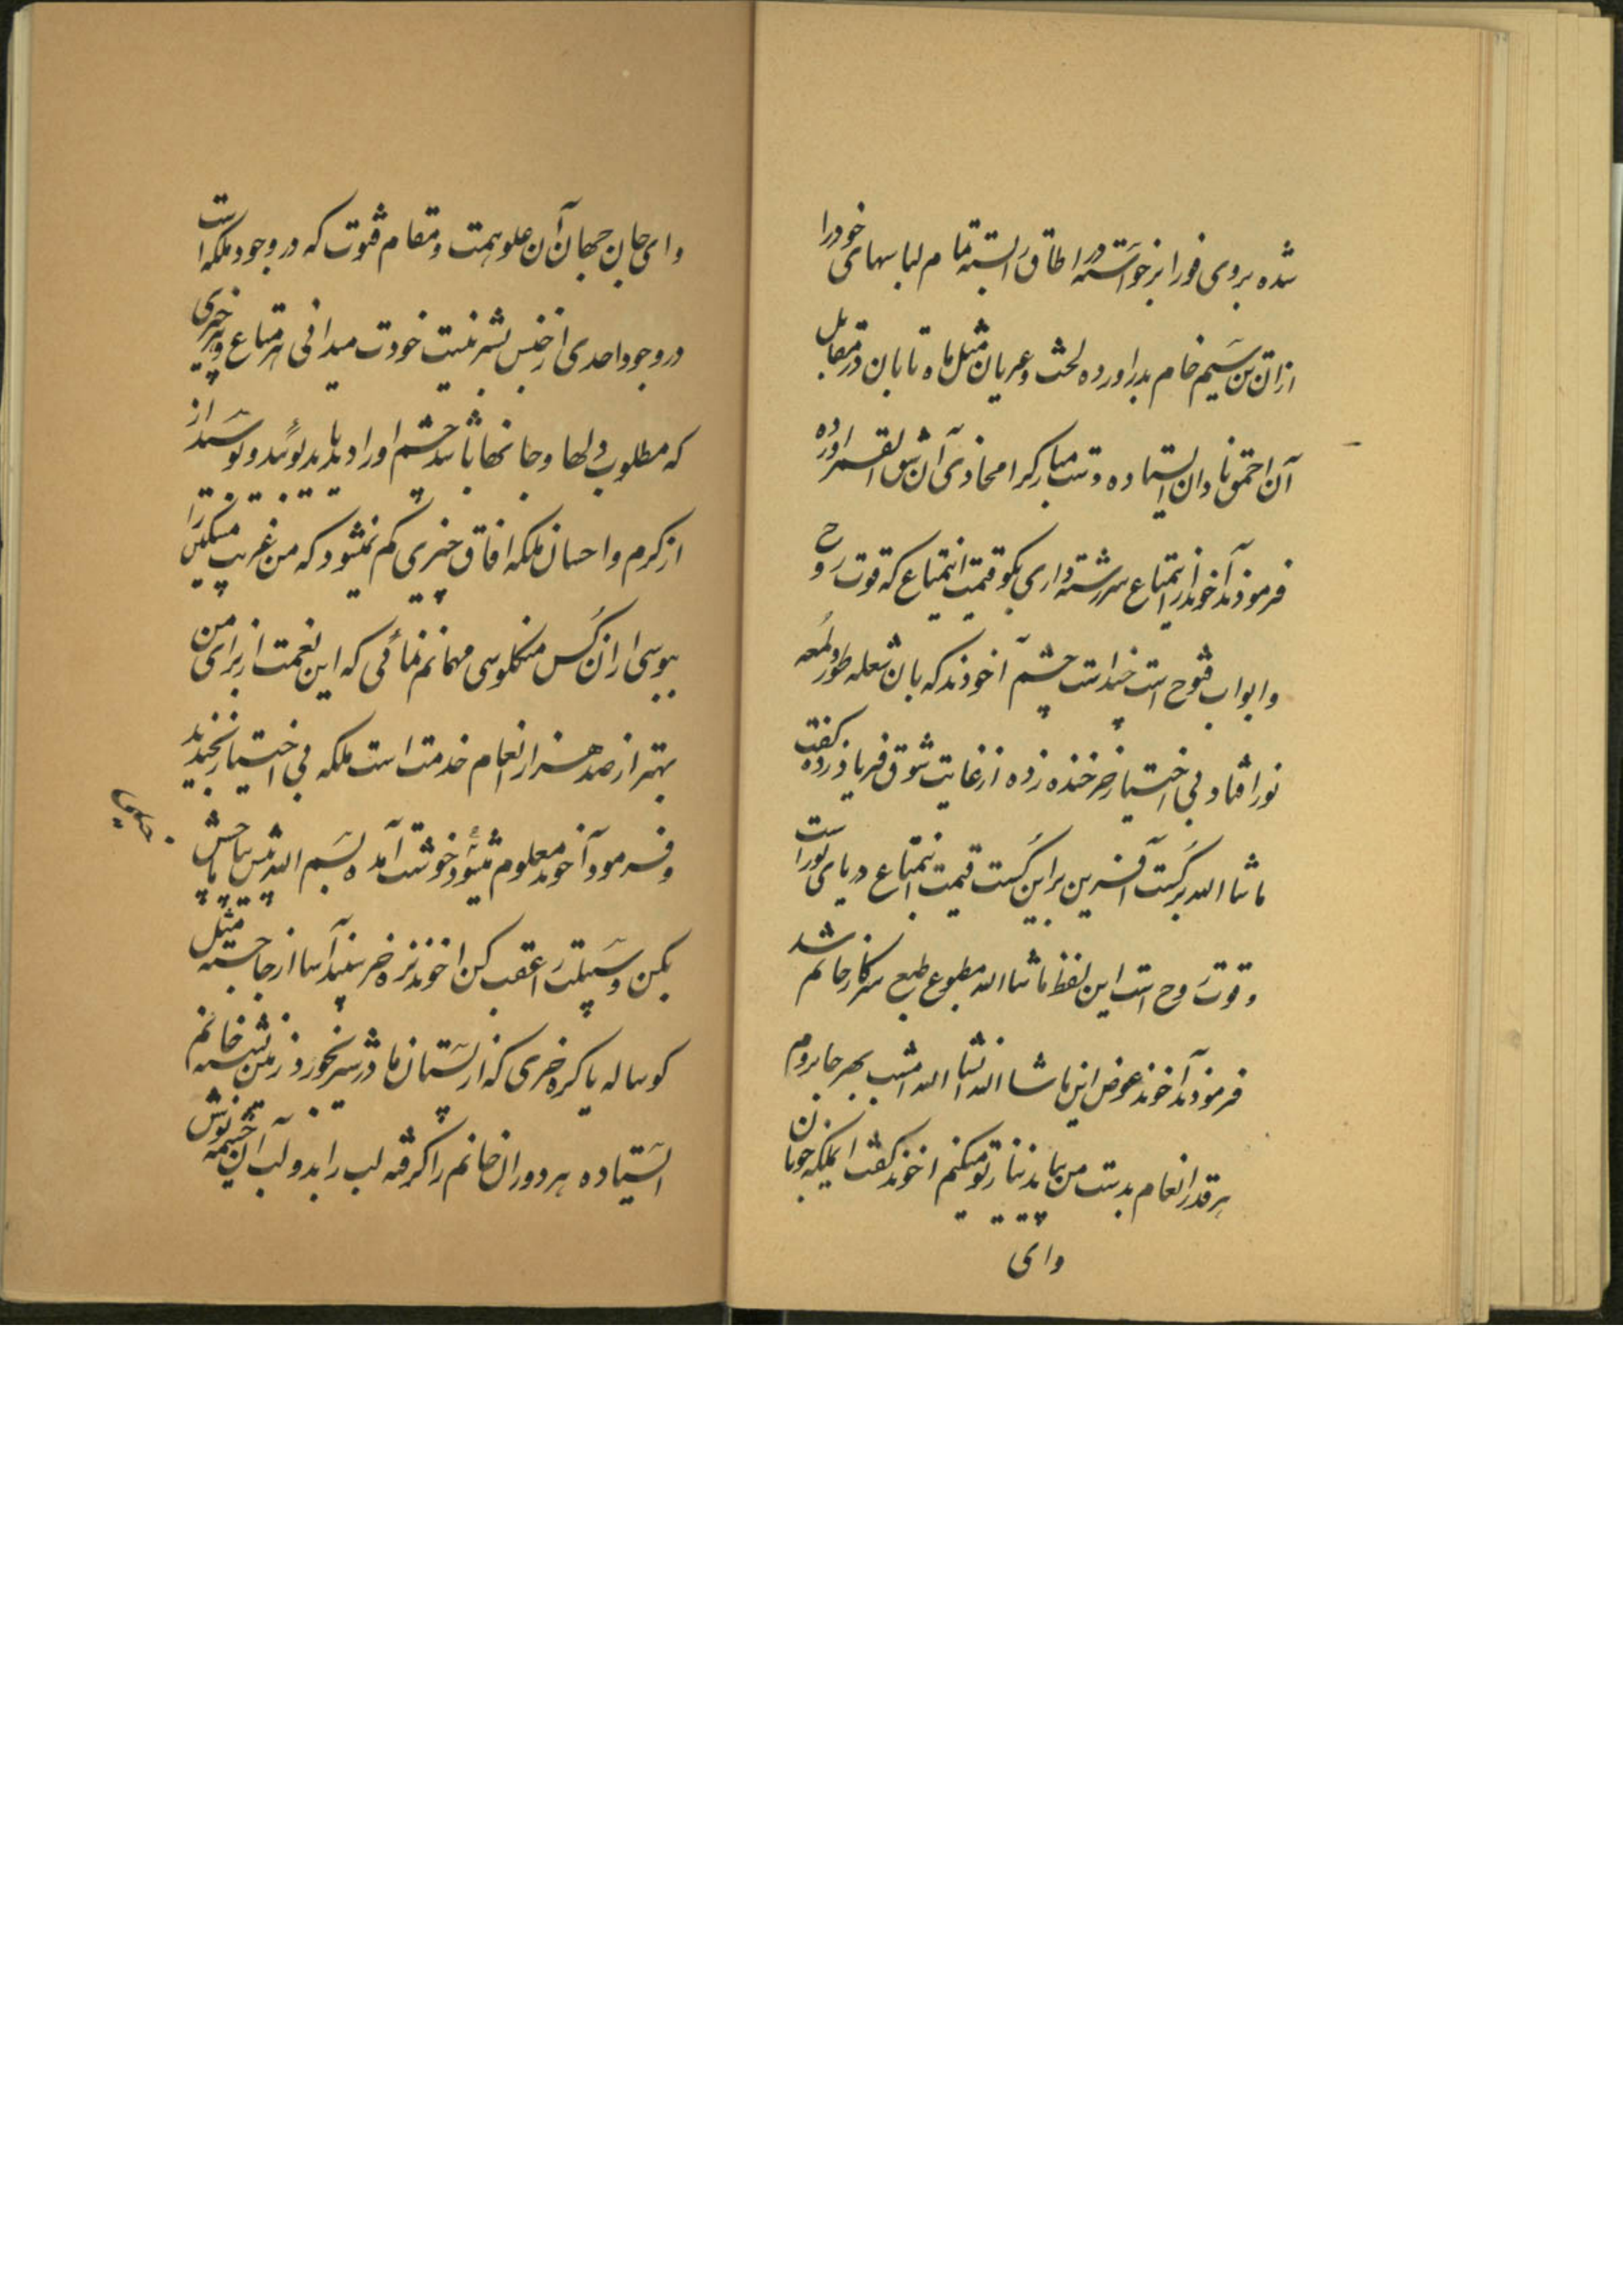 شده بروی فورا برخواسته در اطاق را بسته تمام لباسهای خود را
از آن تن سیم خام بدر اورده لخت و عریان مثل ماه تابان در مقابل
آن احمق نادان ایستاده دست مبارکرا محاذی آن شق القمر اورده
فرمودند آخوند از اینمتاع سررشته داری بگو قیمت اینمتاع که قوت روح
و ابواب فتوح است چند است چشم آخوند که بان شعله طور و لمعه
نور افتاد بی اختیار خر خنده زده از غایت شوق فریاد زده گفت
ماشاالله بر کست آفرین بر این کست قیمت اینمتاع دریای نور است
و قوت روح است این لفظ ماشاالله مطبوع طبع سرکار خانم شد
فرمودند آخوند عوض این ماشاالله انشاالله امشب بهر جا بروم
هر قدر انعام بدست من بیاید نیاز تو میکنم اخوند گفت ایملکه خوبان
وای
وای جان جهان آن علو همت و مقام فتوت که در وجود ملکه است
در وجود احدی از جنس بشر نیست خودت میدانی هر متاع و هر چیزی
که مطلوب دلها و جانها باشد چشم او را دید باید بوئید و بوسید از
از کرم و احسان ملکه افاق چیزی کم نمیشود که من غریب مسکین را
ببوسی از ان کس منگلوسی مهمانم نمائی که این نعمت از برای من
بهتر از صد هزار انعام خدمت است ملکه بی اختیار بخندید
و فرمود آخوند معلوم میشود خوشت آمده بسم الله پس بیا پیش
بکن و سبیلت را عقب کن اخوند نره خر سفید آسا از جا جسته مثل
گوساله یا کره خری که از پستان مادر شیر بخورد زمین نشسته خانم
ایستاده هر دو ران خانم را گرفته لب را بدو لب آن چشمه نوش